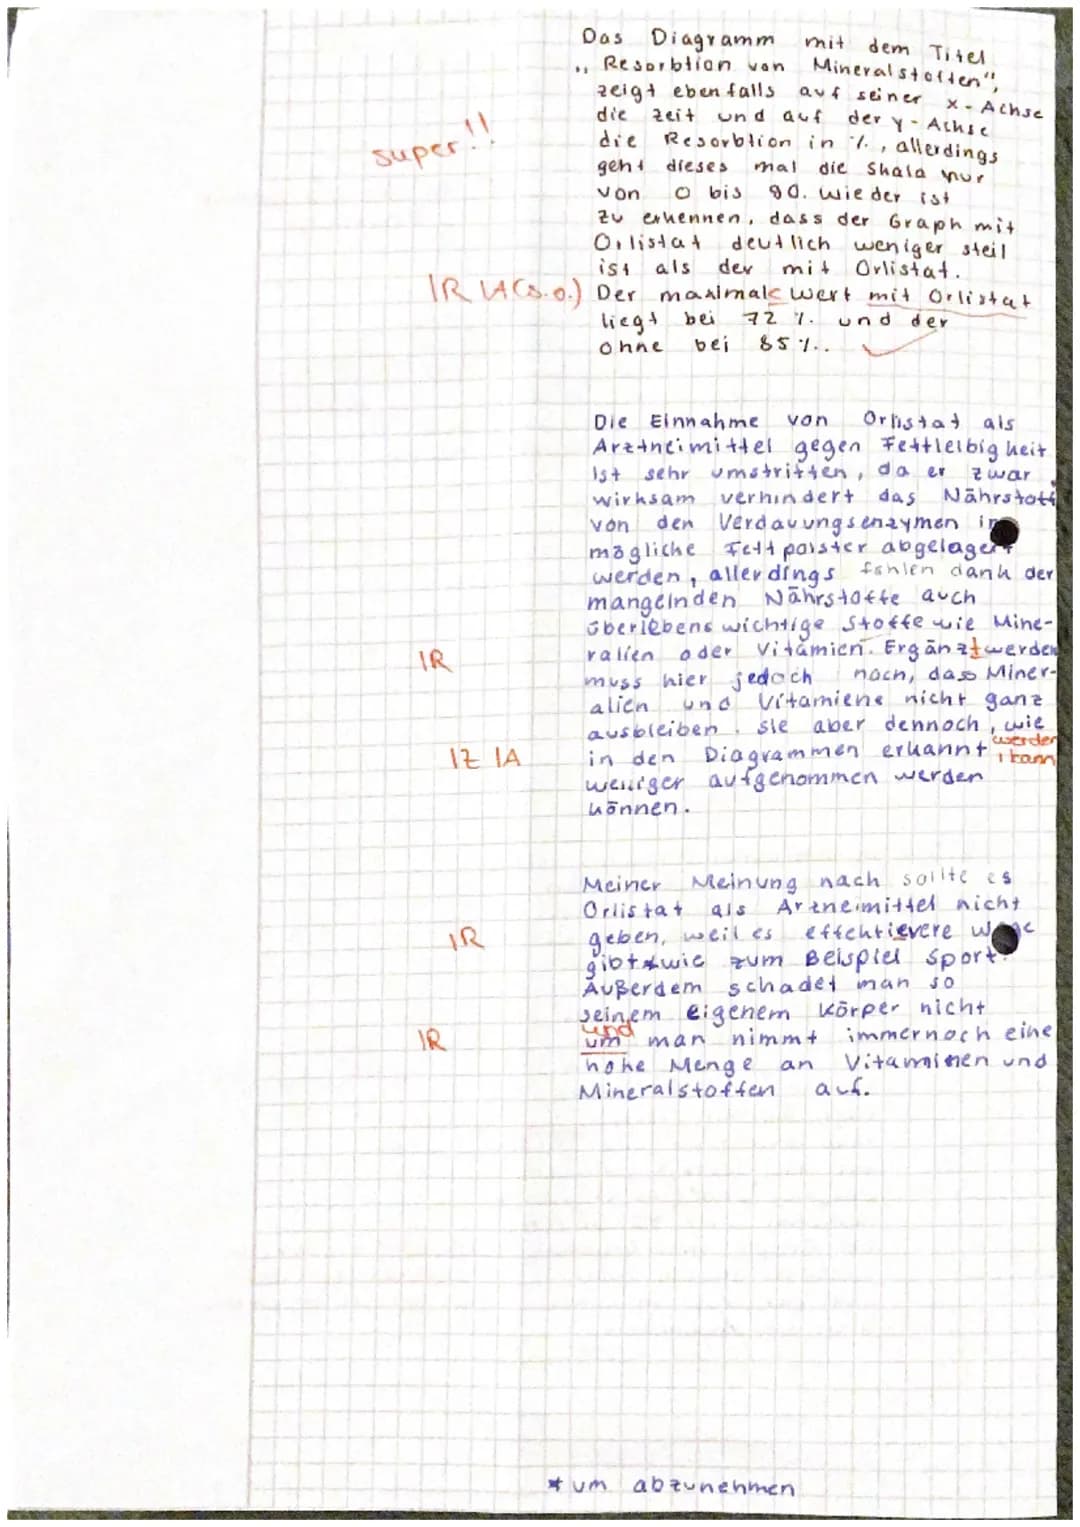 Das Diagramm mit dem Titel
„Resorbtion von Mineralstoffen",
zeigt ebenfalls auf seiner x-Achse
die Zeit und auf der y-Achse
super!!
die Resorbtion in %, allerdings
geht dieses mal die Skala nur
von 0 bis 90. Wieder ist
zu erkennen, dass der Graph mit
Orlistat deutlich weniger steil
ist als der mit Orlistat.
IR IA(s.o.) Der maximale Wert mit Orlistat
liegt bei 72 %. und der
ohne bei 85 %..
Die Einnahme von Orlistat als
Arztneimittel gegen Fettleibigkeit
ist sehr umstritten, da er zwar
wirksam verhindert das Nährstoff
von den Verdauungsenzymen in
mögliche Fettpolster abgelagert
werden, allerdings fehlen dank der
mangelnden Nährstoffe auch
überlebenswichtige Stoffe wie Mine-
IR ralien oder Vitamien. Ergänzt werden
muss hier jedoch noch, dass Miner-
alien und Vitamiene nicht ganz
ausbleiben, sie aber dennoch, wie
werden
IZ IA in den Diagrammen erkannt , kann
weniger aufgenommen werden
können.
Meiner Meinung nach sollte es
Orlistat als Arzneimittel nicht
IR geben, weil es effektievere Wege
gibt * wie zum Beispiel Sport.
Außerdem schadet man so
seinem eigenem Körper nicht
und
IR um man nimmt immernoch eine
hohe Menge an Vitaminen und
Mineralstoffen auf.
* um abzunehmen